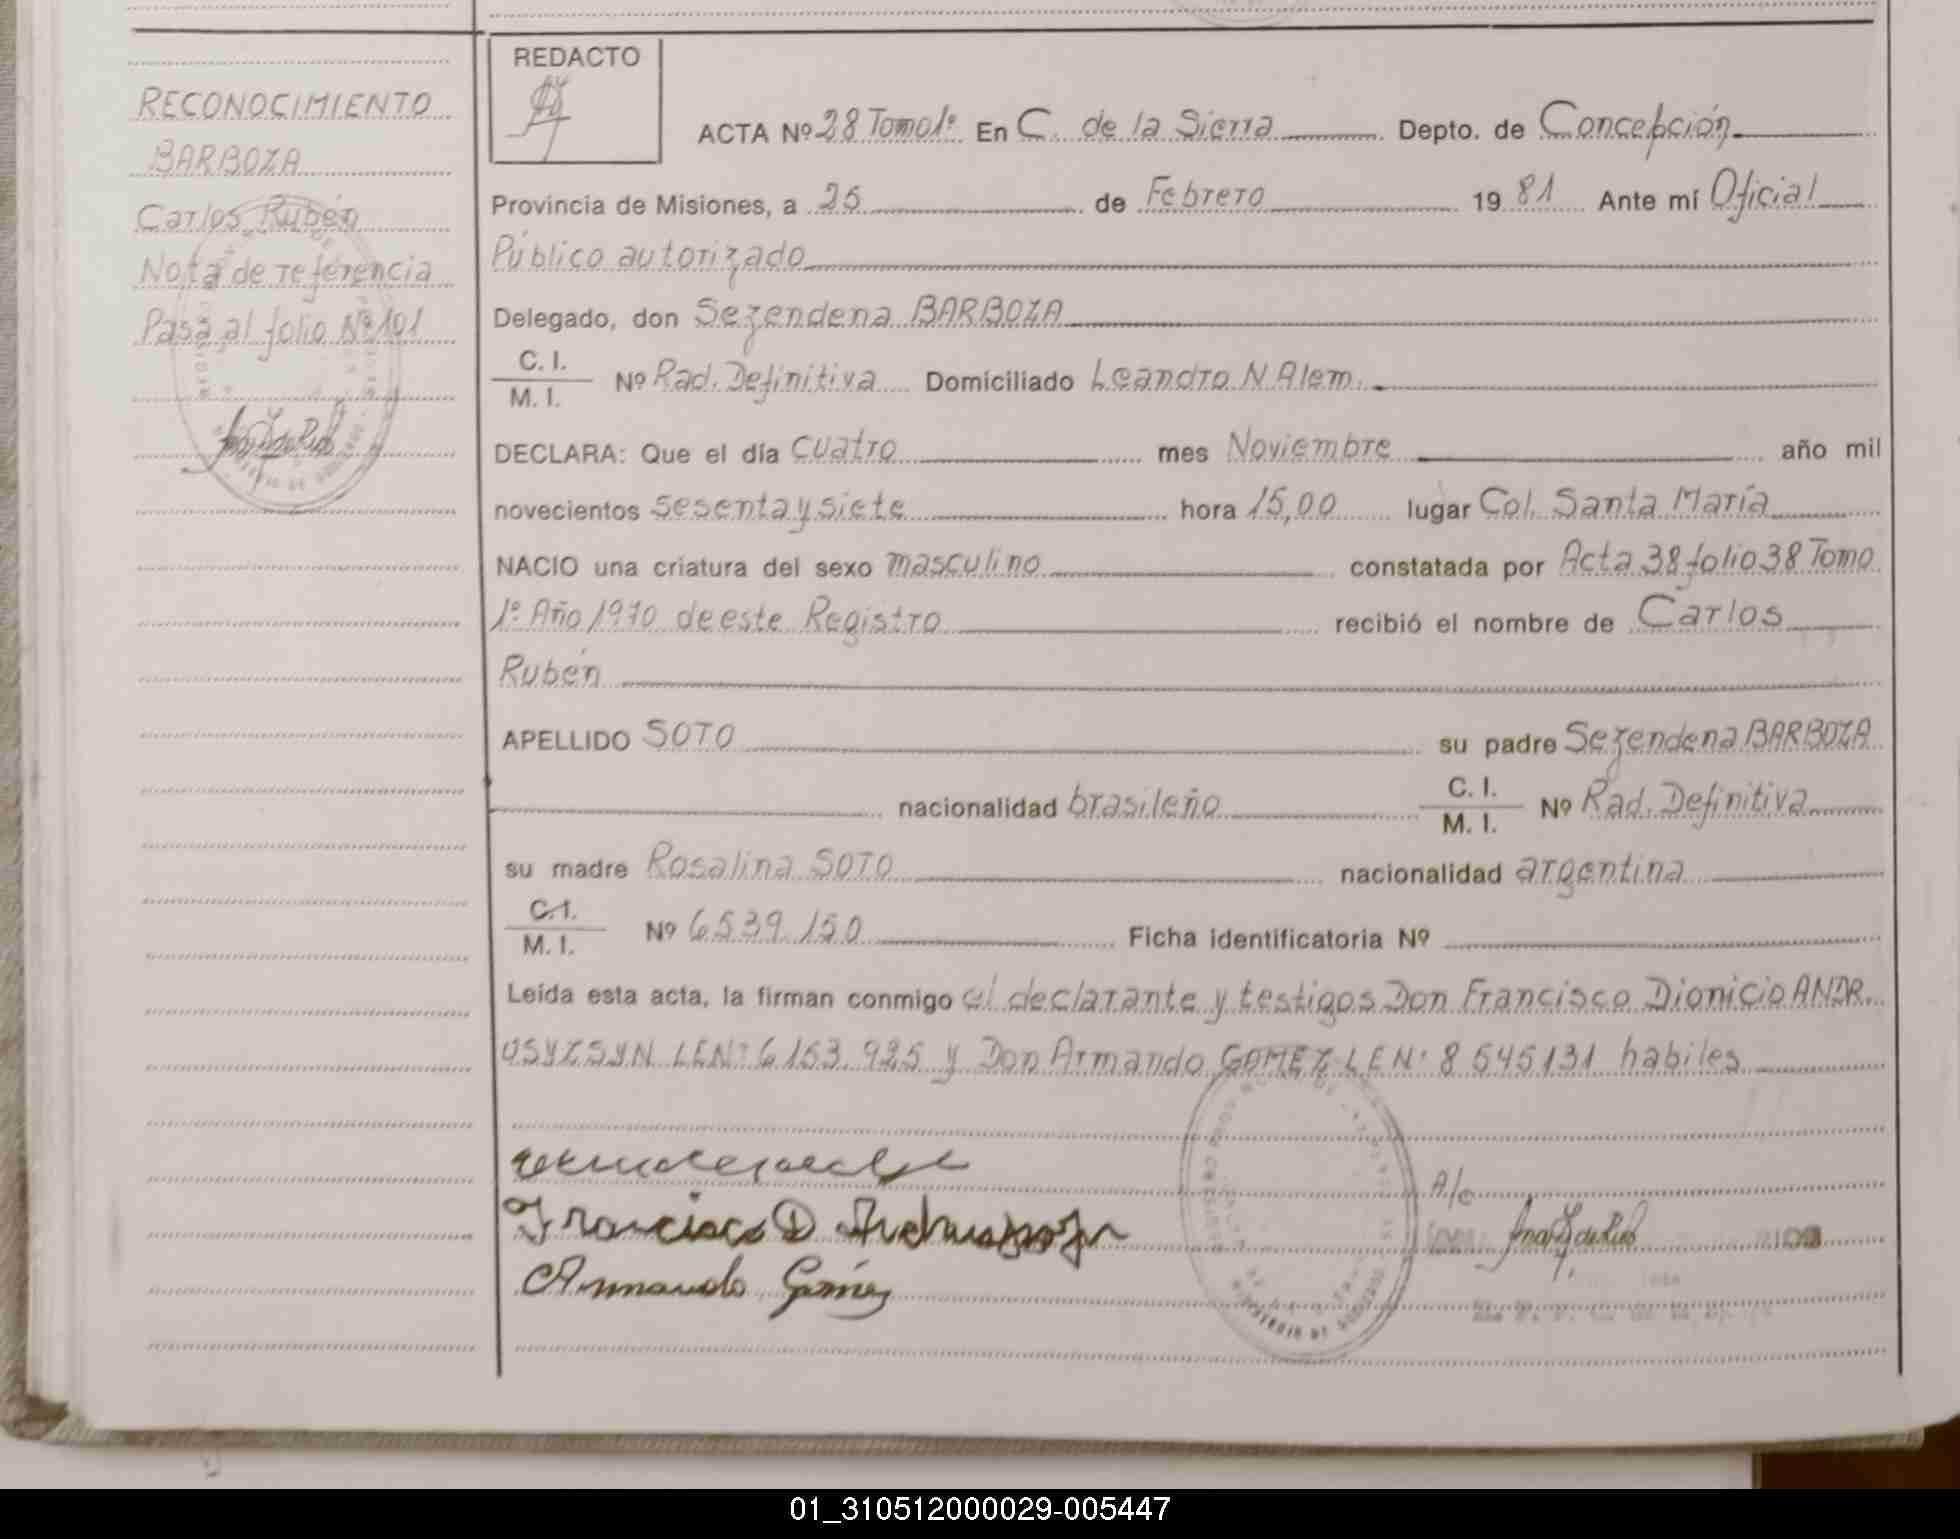 RECONOCIMIENTO
BARBOZA
Carlos Rubén
Nota de referencia
Pasa al folio Nº 101
REDACTO
ACTA Nº 28 Tomo 1º En C. de la Sierra Depto. de Concepción
Provincia de Misiones, a 25 de Febrero 19 81 Ante mí Oficial
Público autorizado
Delegado, don Sezendena BARBOZA
C. I.
M. I. Nº Rad. Definitiva Domiciliado Leandro N Alem.
DECLARA: Que el día cuatro mes Noviembre año mil
novecientos sesenta y siete hora 15,00 lugar Col. Santa María
NACIO una criatura del sexo masculino constatada por Acta 38 folio 38 Tomo
1º Año 1970 de este Registro recibió el nombre de Carlos
Rubén
APELLIDO SOTO su padre Sezendena BARBOZA
nacionalidad brasileño C. I. M. I. Nº Rad. Definitiva
su madre Rosalina SOTO nacionalidad argentina
C. I.
M. I. Nº 6539.150 Ficha identificatoria Nº
Leída esta acta, la firman conmigo el declarante y testigos Don Francisco Dionicio ANDR
USYZSYN LEN: 6153.925 y Don Armando GOMEZ LEN: 8 545131 habiles
Francisco D
A/c
Armando Gómez
01_310512000029-005447